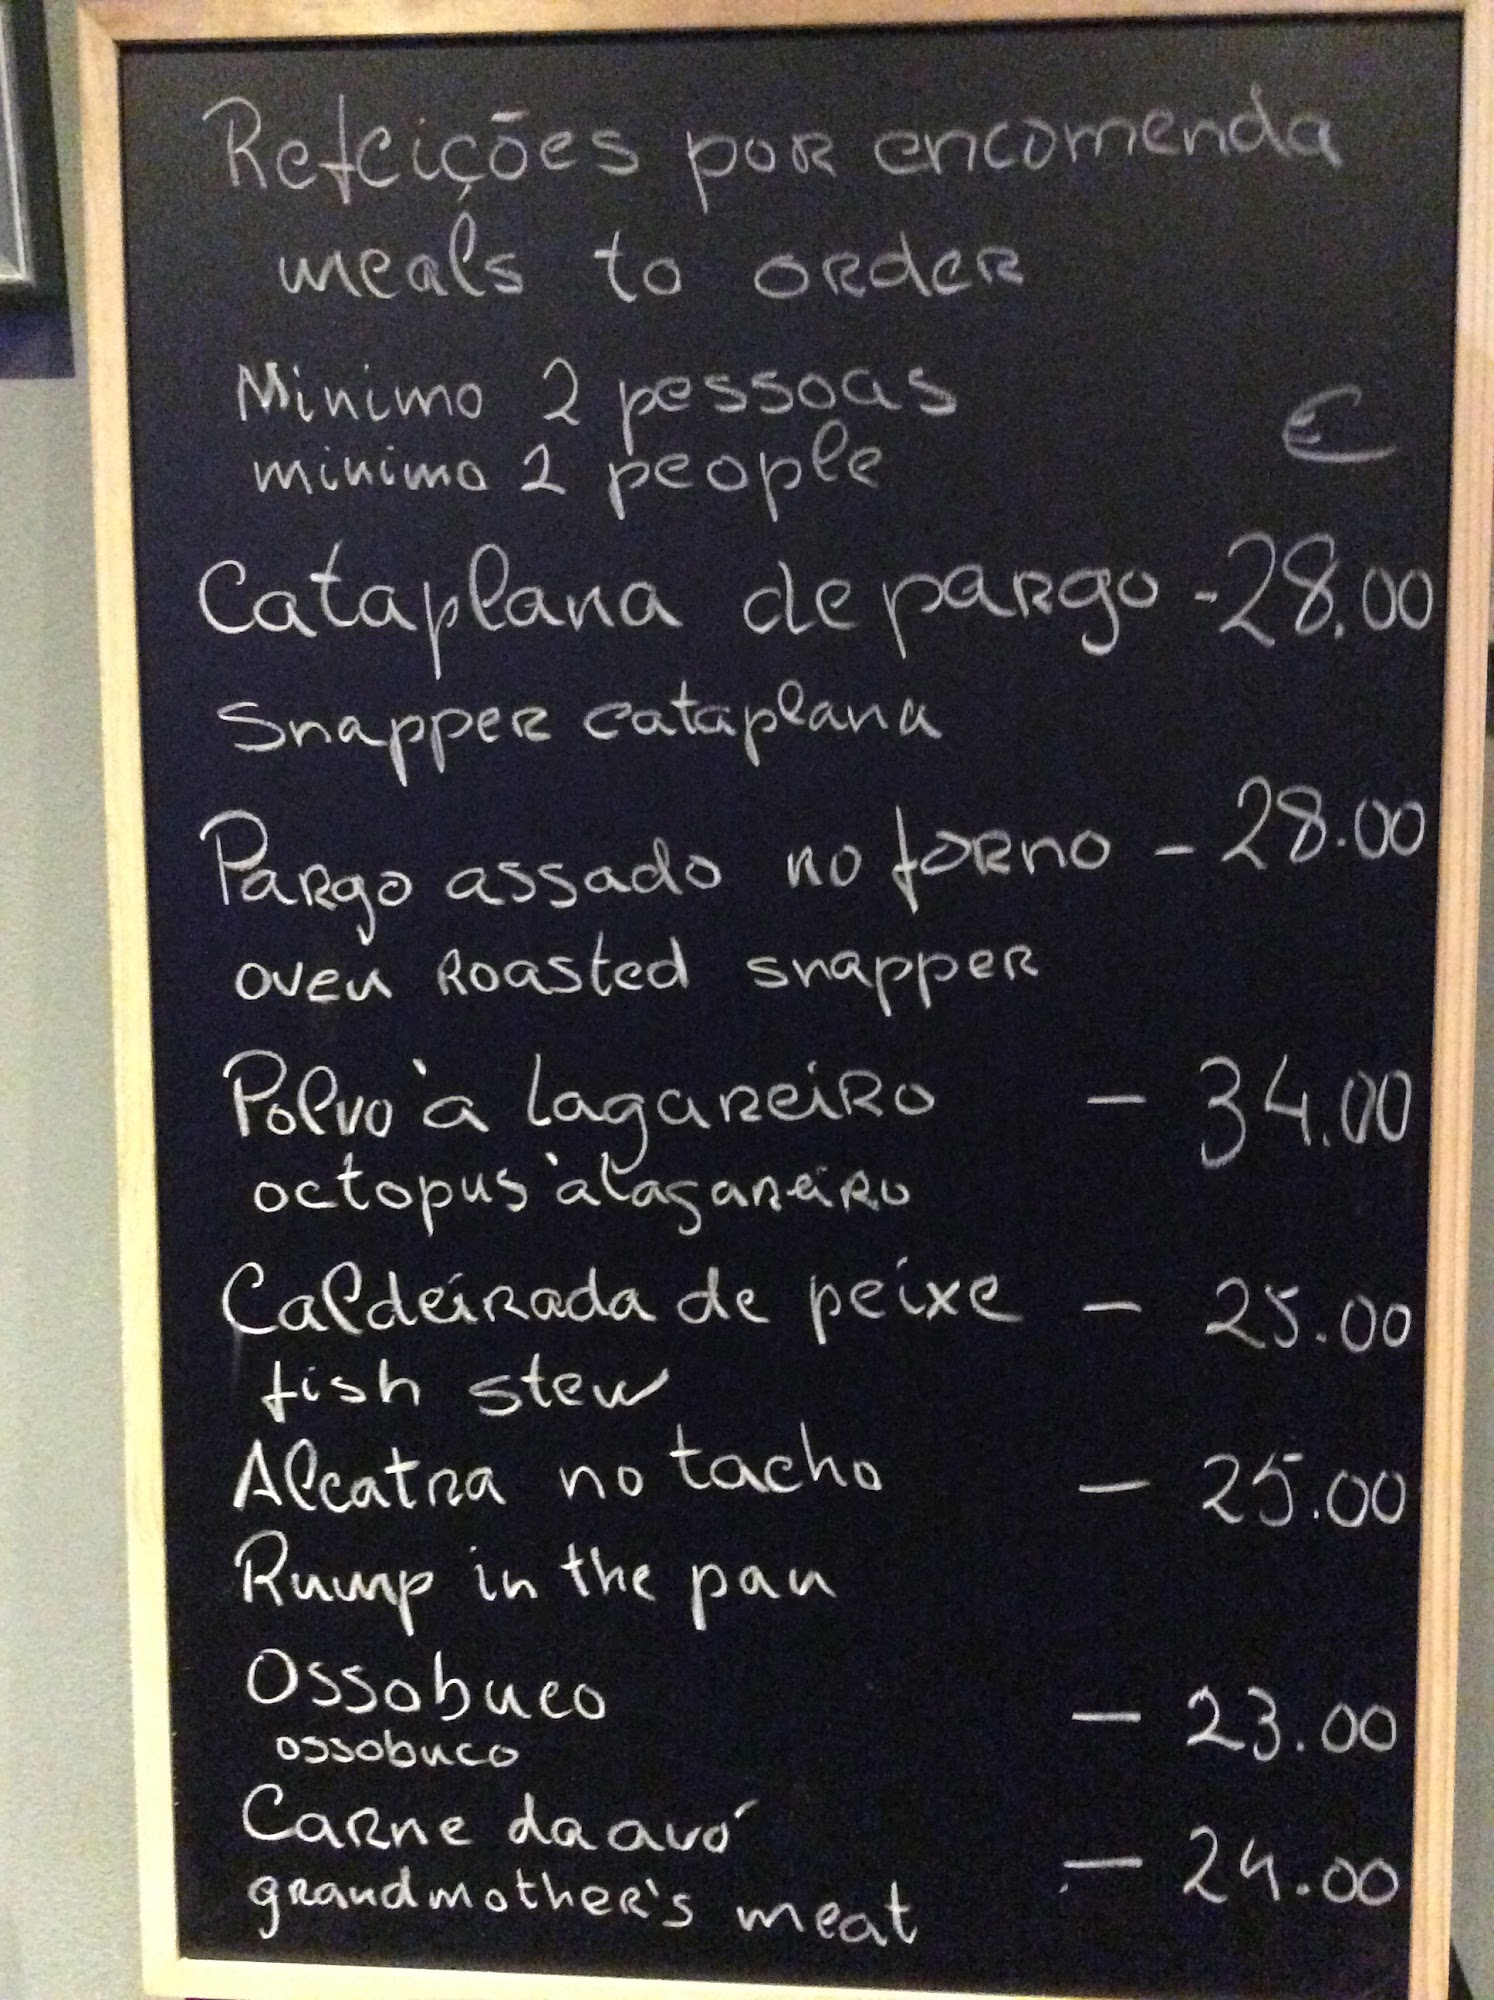 Refeições por encomenda
meals to order
Minimo 2 pessoas
minimo 2 people
€
Cataplana de pargo - 28.00
Snapper cataplana
Pargo assado no forno - 28.00
oven Roasted snapper
Polvo à lagareiro - 34.00
octopus à lagareiro
Caldeirada de peixe - 25.00
fish stew
Alcatra no tacho - 25.00
Rump in the pan
Ossobuco - 23.00
ossobuco
Carne da avó - 24.00
grandmother's meat